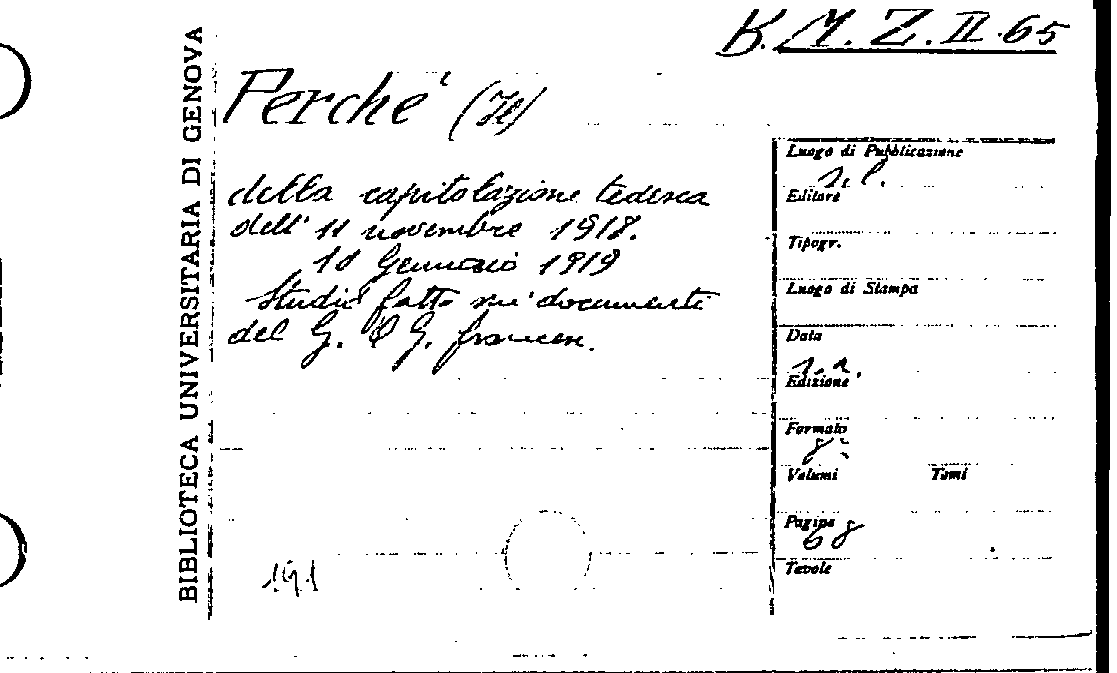 B.M.Z.II.65
BIBLIOTECA UNIVERSITARIA DI GENOVA
Perché (Il)
della capitolazione tedesca
dell' 11 novembre 1918.
10 Gennaio 1919
Studio fatto su' documenti
del G. Q G. francese.
191
Luogo di Pubblicazione
s. l.
Editore
Tipogr.
Luogo di Stampa
Data
s. a.
Edizione
Formato
8°
Volumi Tomi
Pagine
68
Tavole